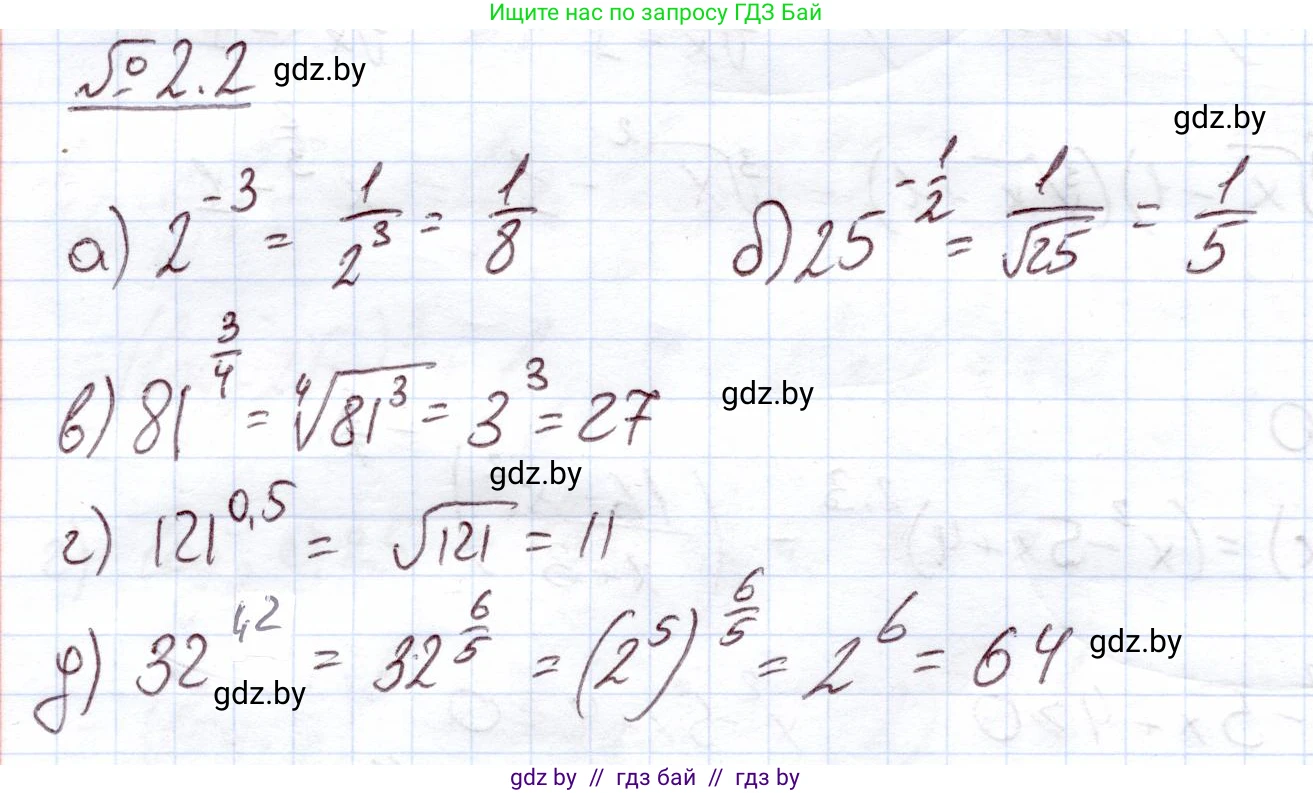 Ищите нас по запросу ГДЗ Бай
№ 2.2 gdz.by
gdz.by
а) 2^{-3} = \frac{1}{2^3} = \frac{1}{8} б) 25^{-\frac{1}{2}} = \frac{1}{\sqrt{25}} = \frac{1}{5}
в) 81^{\frac{3}{4}} = \sqrt[4]{81^3} = 3^3 = 27 gdz.by
gdz.by
г) 121^{0,5} = \sqrt{121} = 11
д) 32^{1,2} = 32^{\frac{6}{5}} = (2^5)^{\frac{6}{5}} = 2^6 = 64 gdz.by
gdz.by
gdz by // гдз бай // гдз by